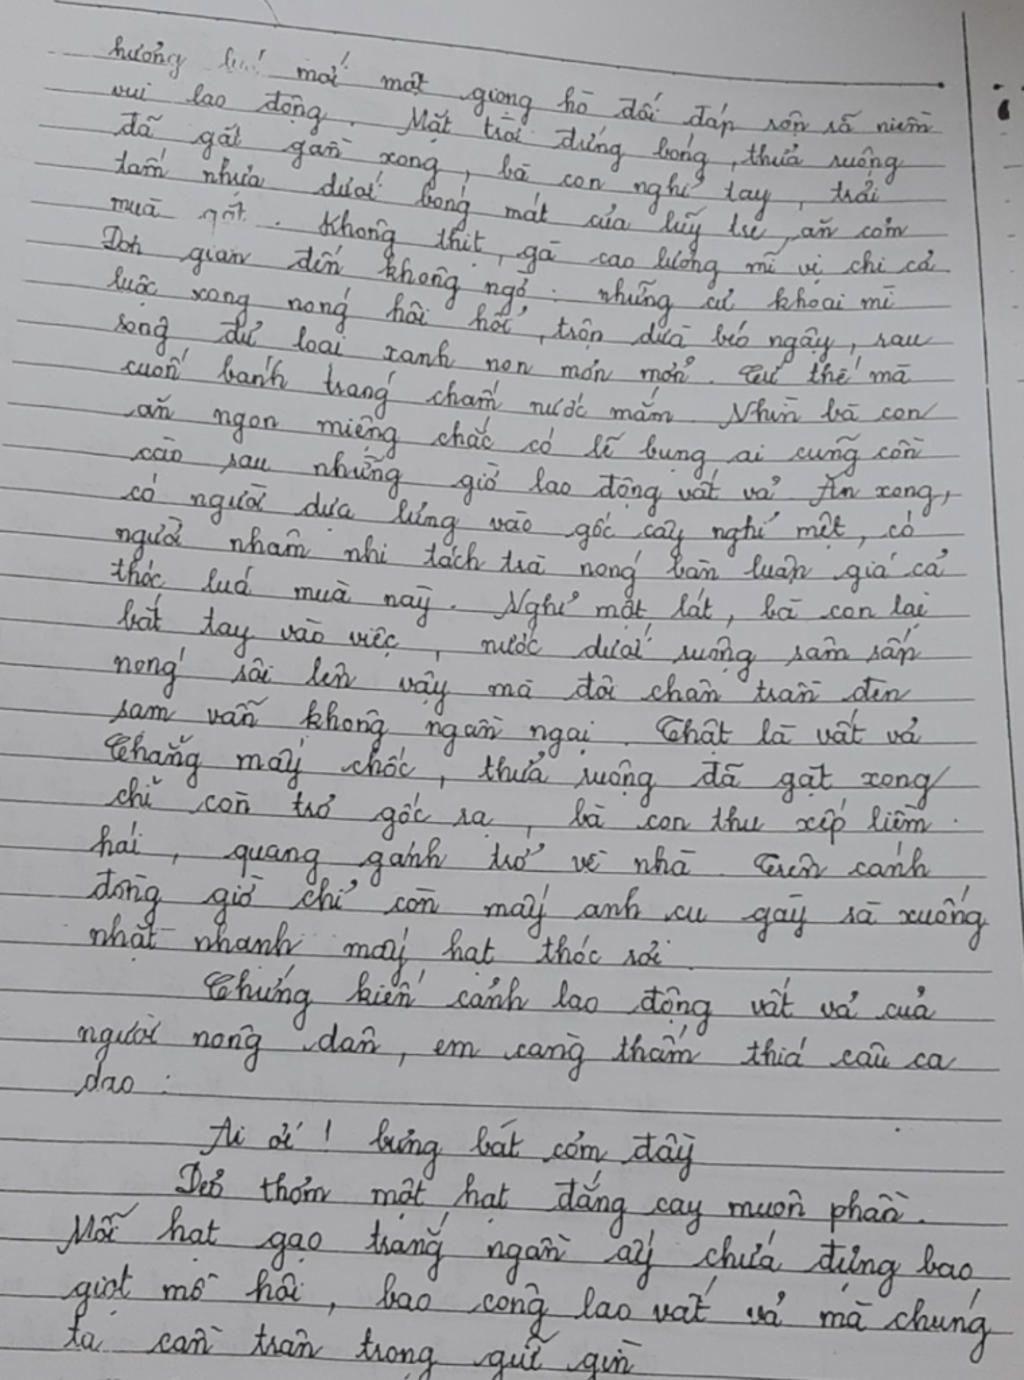 hương lúa mới một giọng hò đối đáp rộn rã niềm
vui lao động. Mặt trời đứng bóng, thửa ruộng
đã gặt gần xong, bà con nghỉ tay, trải
tấm nhựa dưới bóng mát của lũy tre, ăn cơm
mùa gặt. Không thịt, gà cao lương mĩ vị chi cả
Đơn giản đến không ngờ: những củ khoai mì
luộc xong nóng hôi hổi, trộn dừa béo ngậy, rau
sống đủ loại xanh non mơn mởn. Cứ thế mà
cuốn bánh tráng chấm nước mắm. Nhìn bà con
ăn ngon miệng chắc có lẽ bụng ai cũng cồn
cào sau những giờ lao động vất vả. Ăn xong,
có người dựa lưng vào gốc cây nghỉ mệt, có
người nhâm nhi tách trà nóng bàn luận giá cả
thóc lúa mùa này. Nghỉ một lát, bà con lại
bắt tay vào việc, nước dưới ruộng sâm sấp
nóng sôi lên vậy mà đôi chân trần đen
sạm vẫn không ngần ngại. Thật là vất vả
Chẳng mấy chốc, thửa ruộng đã gặt xong
chỉ còn trơ gốc rạ, bà con thu xếp liềm
hái, quang gánh trở về nhà. Trên cánh
đồng giờ chỉ còn mấy anh cu gáy sà xuống
nhặt nhanh mấy hạt thóc rơi.
Chứng kiến cảnh lao động vất vả của
người nông dân, em càng thấm thía câu ca
dao:
Ai ơi! bưng bát cơm đầy
Dẻo thơm một hạt đắng cay muôn phần.
Mỗi hạt gạo trắng ngần ấy chứa đựng bao
giọt mồ hôi, bao công lao vất vả mà chúng
ta cần trân trọng giữ gìn